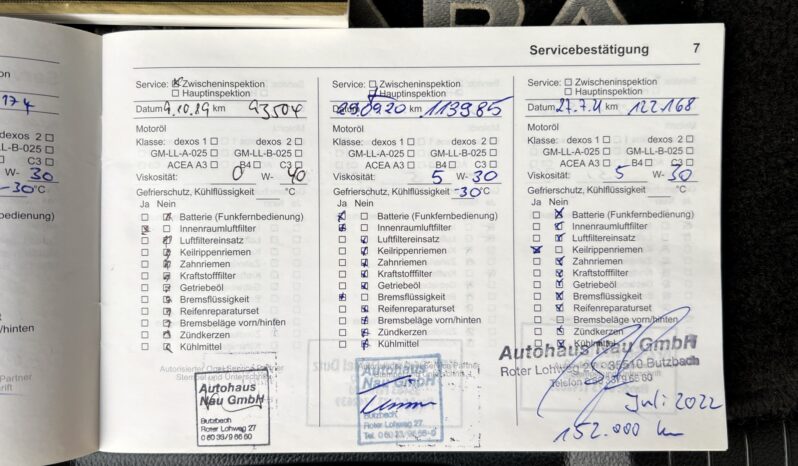 Servicebestätigung 7
Service: Zwischeninspektion
Hauptinspektion
Datum 9.10.19 km 93504
Motoröl
Klasse: dexos 1 dexos 2
GM-LL-A-025 GM-LL-B-025
ACEA A3 B4 C3
Viskosität: 0 W- 40
Gefrierschutz, Kühlflüssigkeit °C
Ja Nein
Batterie (Funkfernbedienung)
Innenraumluftfilter
Luftfiltereinsatz
Keilrippenriemen
Zahnriemen
Kraftstofffilter
Getriebeöl
Bremsflüssigkeit
Reifenreparaturset
Bremsbeläge vorn/hinten
Zündkerzen
Kühlmittel
Autorisierter Opel Service Partner
Stempel und Unterschrift
Autohaus
Nau GmbH
Butzbach
Roter Lohweg 27
0 60 33/9 66 60
Service: Zwischeninspektion
Hauptinspektion
Datum 290920 km 113985
Motoröl
Klasse: dexos 1 dexos 2
GM-LL-A-025 GM-LL-B-025
ACEA A3 B4 C3
Viskosität: 5 W- 30
Gefrierschutz, Kühlflüssigkeit -30 °C
Ja Nein
Batterie (Funkfernbedienung)
Innenraumluftfilter
Luftfiltereinsatz
Keilrippenriemen
Zahnriemen
Kraftstofffilter
Getriebeöl
Bremsflüssigkeit
Reifenreparaturset
Bremsbeläge vorn/hinten
Zündkerzen
Kühlmittel
Autohaus
Nau GmbH
Butzbach
Roter Lohweg 27
Service: Zwischeninspektion
Hauptinspektion
Datum 27.7.21 km 122168
Motoröl
Klasse: dexos 1 dexos 2
GM-LL-A-025 GM-LL-B-025
ACEA A3 B4 C3
Viskosität: 5 W- 30
Gefrierschutz, Kühlflüssigkeit °C
Ja Nein
Batterie (Funkfernbedienung)
Innenraumluftfilter
Luftfiltereinsatz
Keilrippenriemen
Zahnriemen
Kraftstofffilter
Getriebeöl
Bremsflüssigkeit
Reifenreparaturset
Bremsbeläge vorn/hinten
Zündkerzen
Kühlmittel
Autohaus Nau GmbH
Roter Lohweg 35510 Butzbach
Telefon
Juli 2022
152.000 km
174
dexos 2
LL-B-025
C3
W- 30
-30 °C
bedienung)
n/hinten
Partner